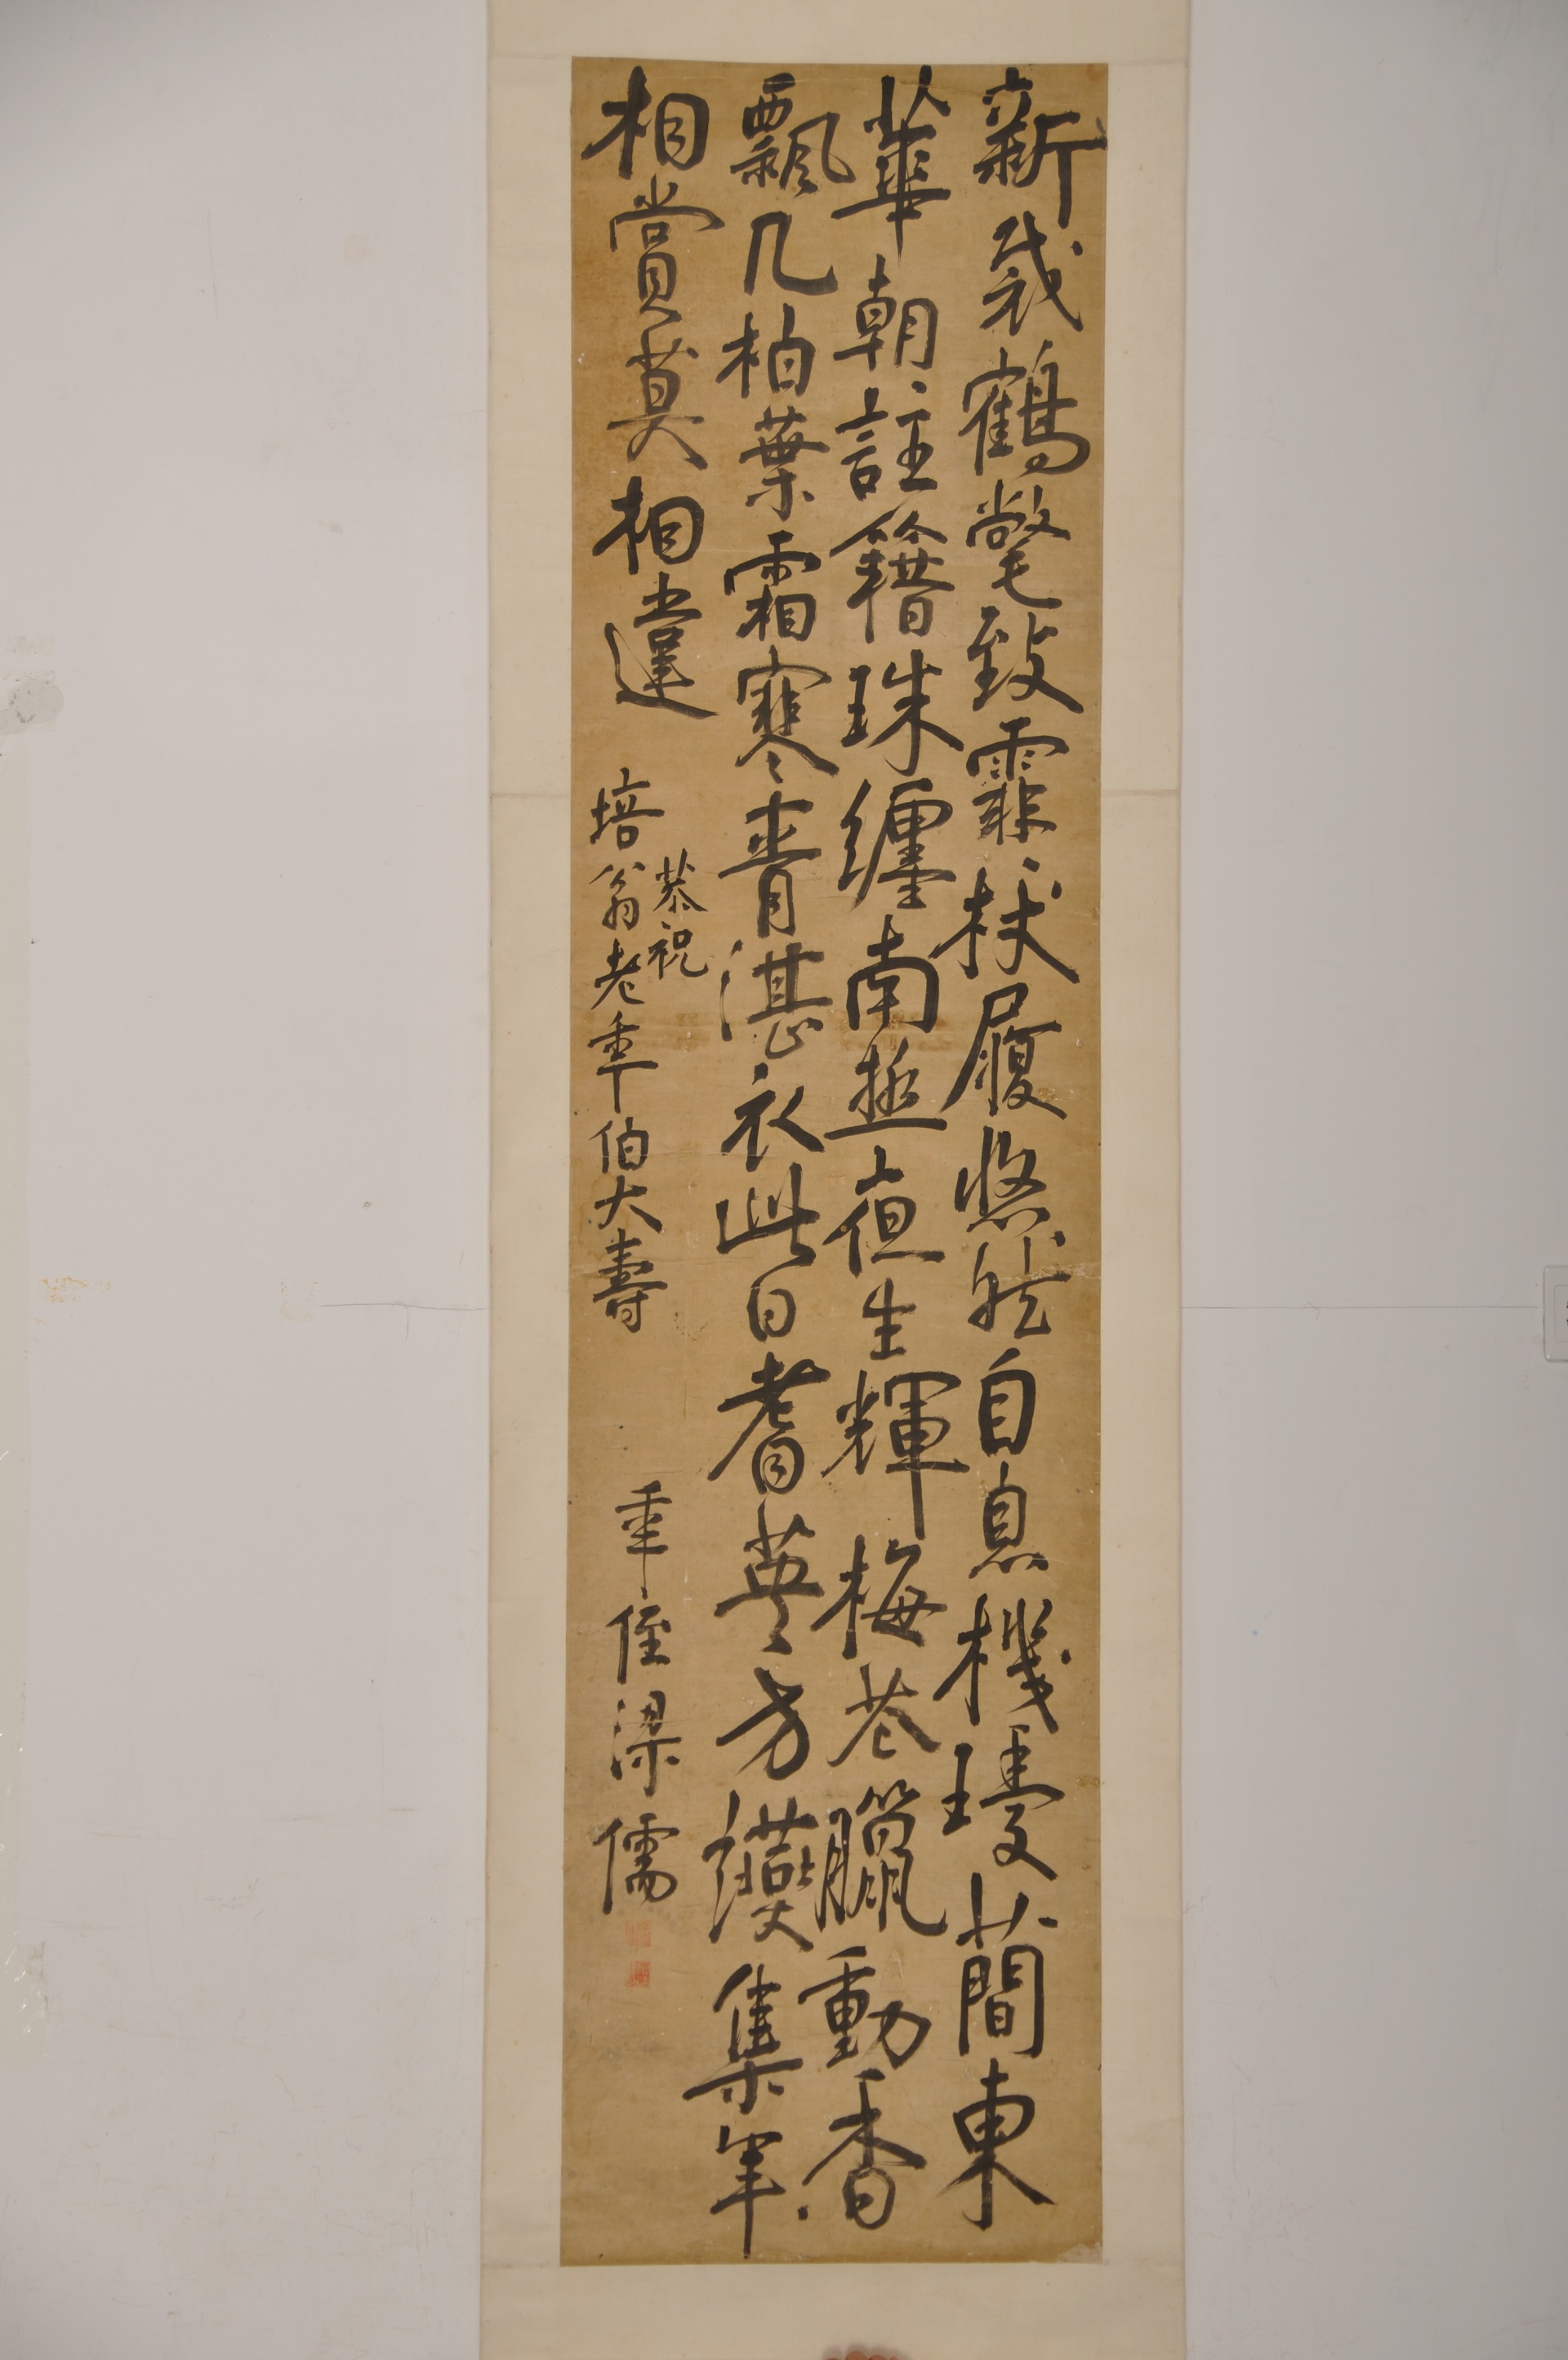 新裁鶴氅致霏霏杖履悠然自息機瓊蕳東
華朝註籍珠纏南極夜生輝梅花臘動香
飄几柏葉霜寒青湛衣此日耆英方讌集年年
相賞莫相違
恭祝
培翁老年伯大壽
年侄梁儒